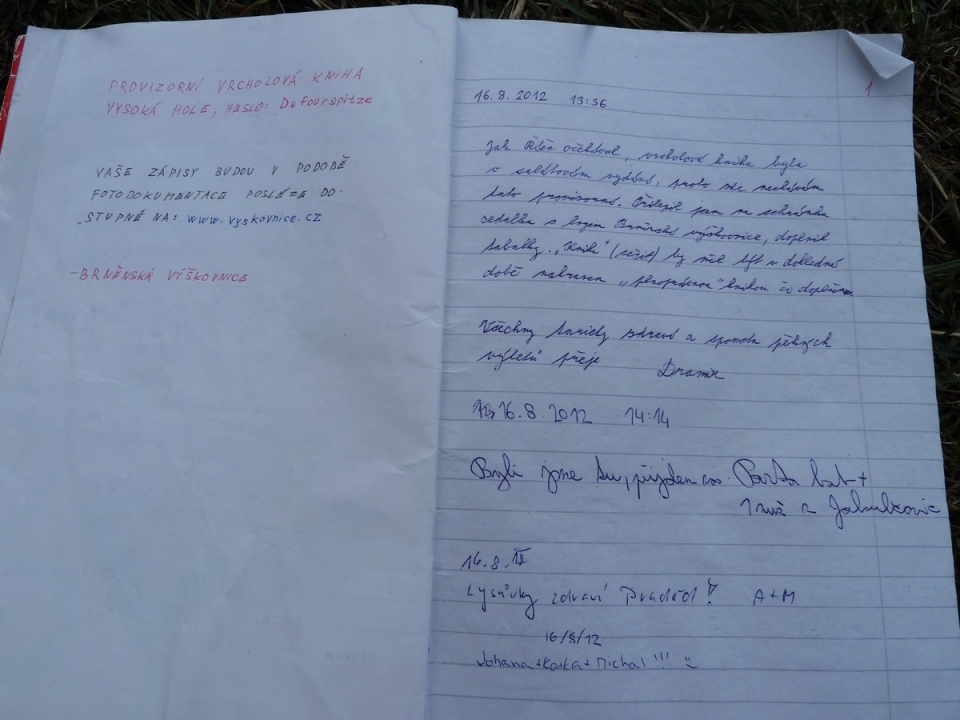 PROVIZORNÍ VRCHOLOVÁ KNIHA
VYSOKÁ HOLE, HESLO: Dufourspitze
VAŠE ZÁPISY BUDOU V PODOBĚ
FOTODOKUMENTACE POSLÉZE DO-
STUPNÉ NA: www.vyskovnice.cz
-BRNĚNSKÁ VÝŠKOVNICE
1
16.8.2012 13:56
Jak Říša očekával, vrcholová kniha byla
v žalostném, proto zde nechávám
tuto provizorní. Přilepil jsem na schránku
cedulku s logem Brněnské výškovnice, doplnil
tabulky. "Kniha" (sešit) by měl být v dohledné
době nahrazen knihou či doplněn
Všechny turisty zdraví a spoustu pěkných
výletů přeje
16.8.2012 14:14
Byli jsme tu, přijdem zas. Parta bab +
1 muž z Jakubčovic
16.8.12
Lysůvky zdraví Praděd! A+M
16/8/12
Johana+Katka+Michal!!!